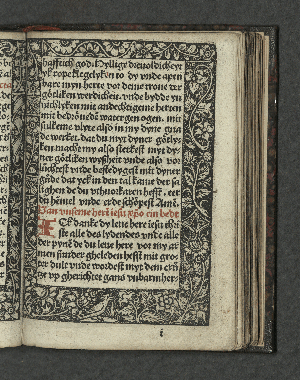 haftich god. Hyllige dreuoldicheyt
yk rope klegelyken to dy vnde apen
bare myn herte vor dene trone der
götliken werdicheit. vnde bydde yn
nichlyken mit andechtigeme herten
mit bedröuede water gen ogen. mit
sulkeme vlyte also in my dyne gna
de werket. dat du myt dyner götly
ken macht my also sterkest myt dy
ner götliken wyßheit vnde also vor
luchtest vnde bestedygest mit dyner
gude dat yk in den tal kame der sa
lighen de du vthuorkaren heffst. eer
du hemel vnde erde schöpest Amē.
Van vnseme herē iesu xpō ein bedt
Ick danke dy leue here iesu chri
ste alle des lydendes vnde alle
der pynē de du leue here vor my ar
men sunder gheleden hefft mit gro
ter dult vnde wordest myt dem crü
tze vp gherichtet gans vnbarmher